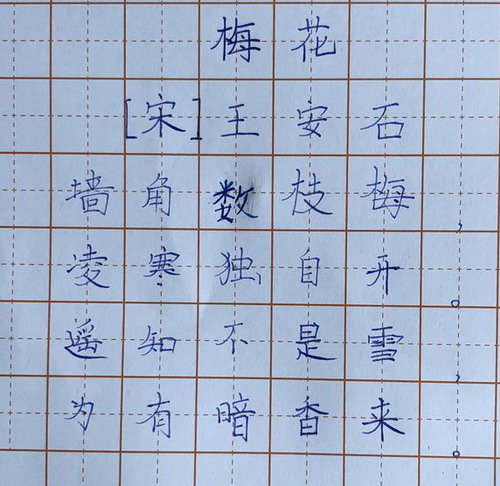 梅花
[宋]王安石
墙角数枝梅,
凌寒独自开。
遥知不是雪,
为有暗香来。